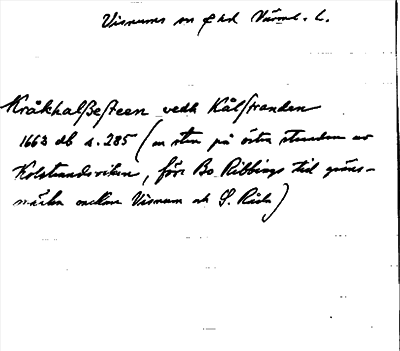 Visnums sn o hd Värml. l.
Kråkhalßesteen vedh Kålstranden
1663 db s. 285 (en sten på östra stranden av
Kolstrandsviken, före Bo Ribbings tid gräns-
märke mellan Visnum och S. Råda)